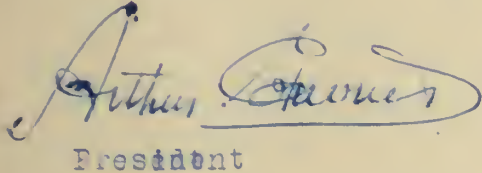 Arthur
President